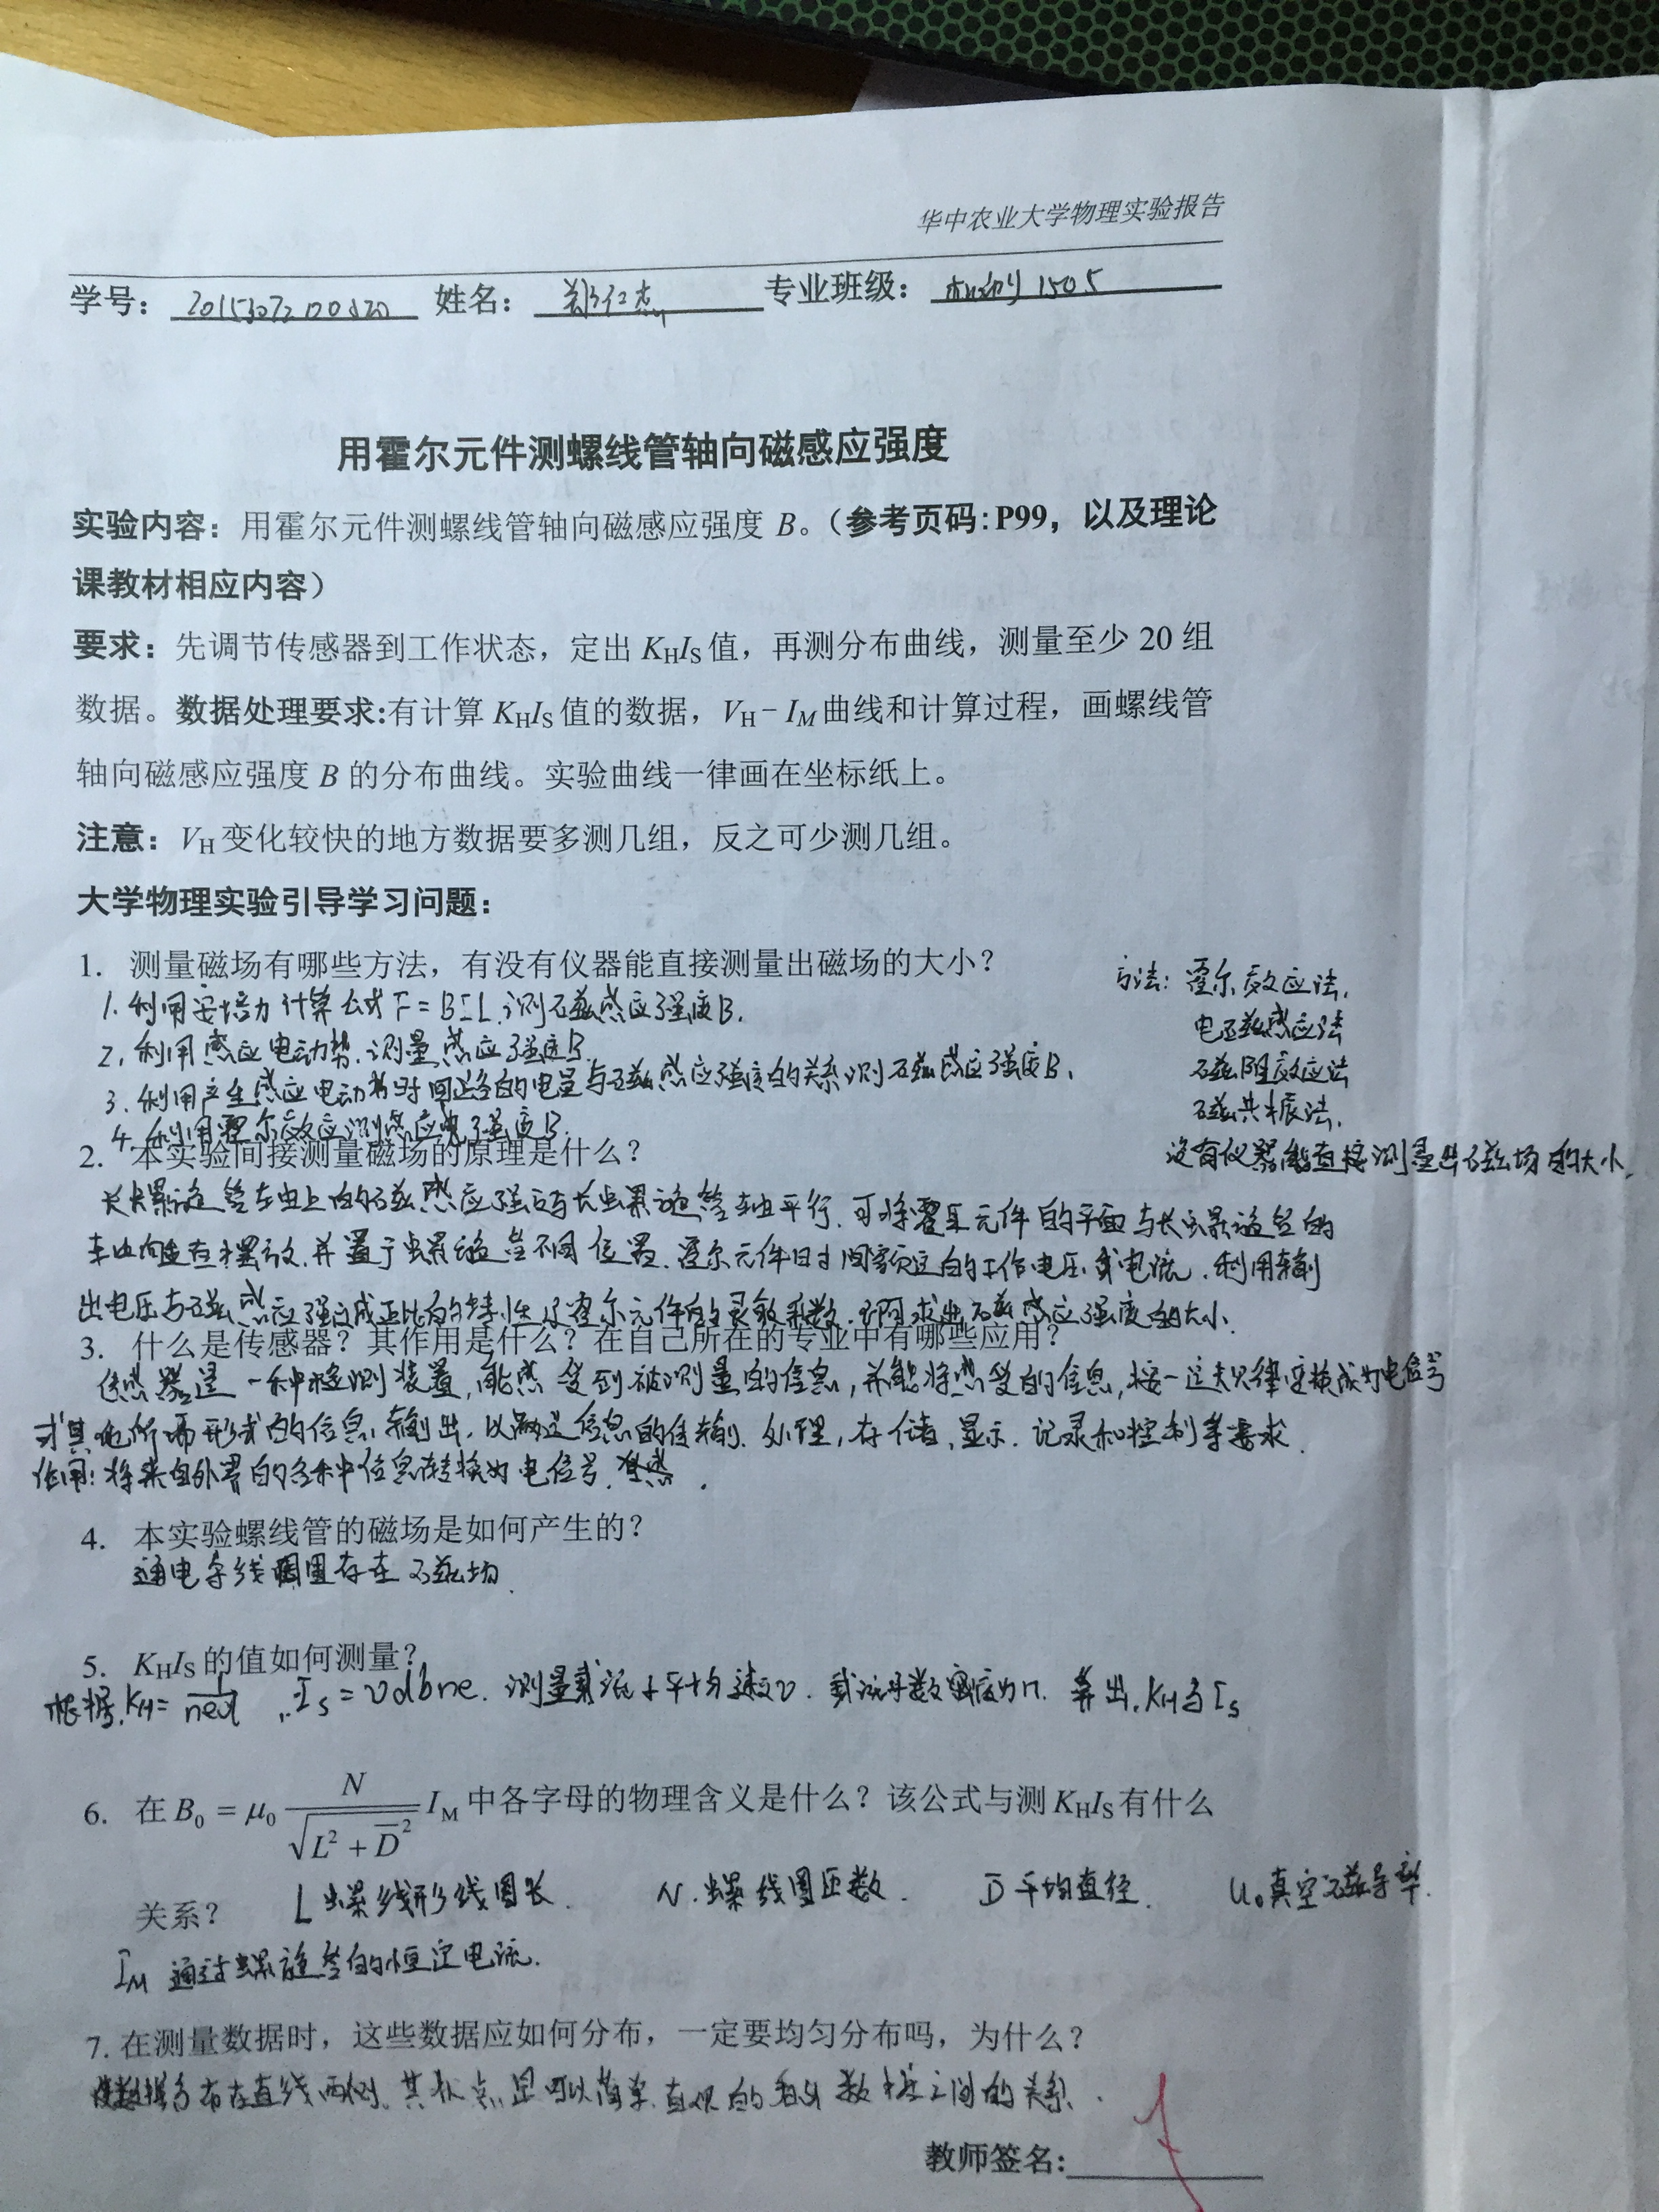 华中农业大学物理实验报告
学号: 姓名: 郑仁杰 专业班级: 1505
用霍尔元件测螺线管轴向磁感应强度
实验内容: 用霍尔元件测螺线管轴向磁感应强度 B。(参考页码:P99, 以及理论
课教材相应内容)
要求: 先调节传感器到工作状态, 定出 KHIS 值, 再测分布曲线, 测量至少 20 组
数据。数据处理要求:有计算 KHIS 值的数据, VH－IM 曲线和计算过程, 画螺线管
轴向磁感应强度 B 的分布曲线。实验曲线一律画在坐标纸上。
注意: VH 变化较快的地方数据要多测几组, 反之可少测几组。
大学物理实验引导学习问题:
1. 测量磁场有哪些方法, 有没有仪器能直接测量出磁场的大小?
1. 利用安培力计算公式 F=BIL 测磁感应强度B.
2. 利用感应电动势.测量感应强度B.
3. 利用产生感应电动势时回路的电量与磁感应强度的关系测磁感应强度B.
4. 利用霍尔效应测感应强度B.
方法: 霍尔效应法,
电磁感应法
磁阻效应法
磁共振法.
没有仪器能直接测量出磁场的大小.
2. 本实验间接测量磁场的原理是什么?
长螺旋管轴上的磁感应强度与长螺旋管轴平行.可将霍尔元件的平面与长螺旋管的
轴向垂直摆放.并置于螺旋管不同位置.霍尔元件加额定的工作电压或电流.利用输
出电压与磁感应强度成正比的特性及霍尔元件的灵敏系数.即可求出磁感应强度的大小.
3. 什么是传感器? 其作用是什么? 在自己所在的专业中有哪些应用?
传感器是一种检测装置,能感受到被测量的信息,并能将感受的信息,按一定规律变换成为电信号
或其他所需形式的信息输出,以满足信息的传输.处理,存储,显示.记录和控制等要求.
作用: 将来自外界的各种信息转换为电信号.
4. 本实验螺线管的磁场是如何产生的?
通电导线周围存在磁场.
5. KHIS 的值如何测量?
根据.KH=1/ned ,IS=vdbne. 测量载流子平均速度v. 载流子数密度为n. 算出.KH与IS
6. 在 B0 = μ0 N/√(L²+D̄²) IM 中各字母的物理含义是什么? 该公式与测 KHIS 有什么
关系? L 螺线形线圈长. N.螺线圈匝数. D̄ 平均直径. U0真空磁导率.
IM 通过螺旋管的恒定电流.
7. 在测量数据时, 这些数据应如何分布, 一定要均匀分布吗, 为什么?
数据分布在直线两侧. 其优点是可以简单.直观的看出数据之间的关系.
教师签名: